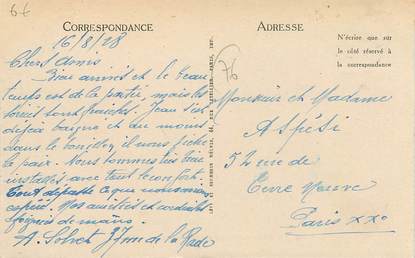 6€
CORRESPONDANCE
ADRESSE
N'écrire que sur
le côté réservé à
la correspondance
76
16/8/28
Chers Amis
Bien arrivés et le beau
temps est de la partie, mais les
soirées sont fraiches. Jean s'est
déjà baigné et du moins
dans le bon, il nous
le pair. Nous sommes très bien
installés avec tout le confort.
Tout dépasse ce que nous avions
espéré. Nos amitiés et cordiales
poignées de mains.
A. 37 rue de la Rade
Monsieur et Madame
Aspési
52 rue de
Terre Neuve
Paris XXe